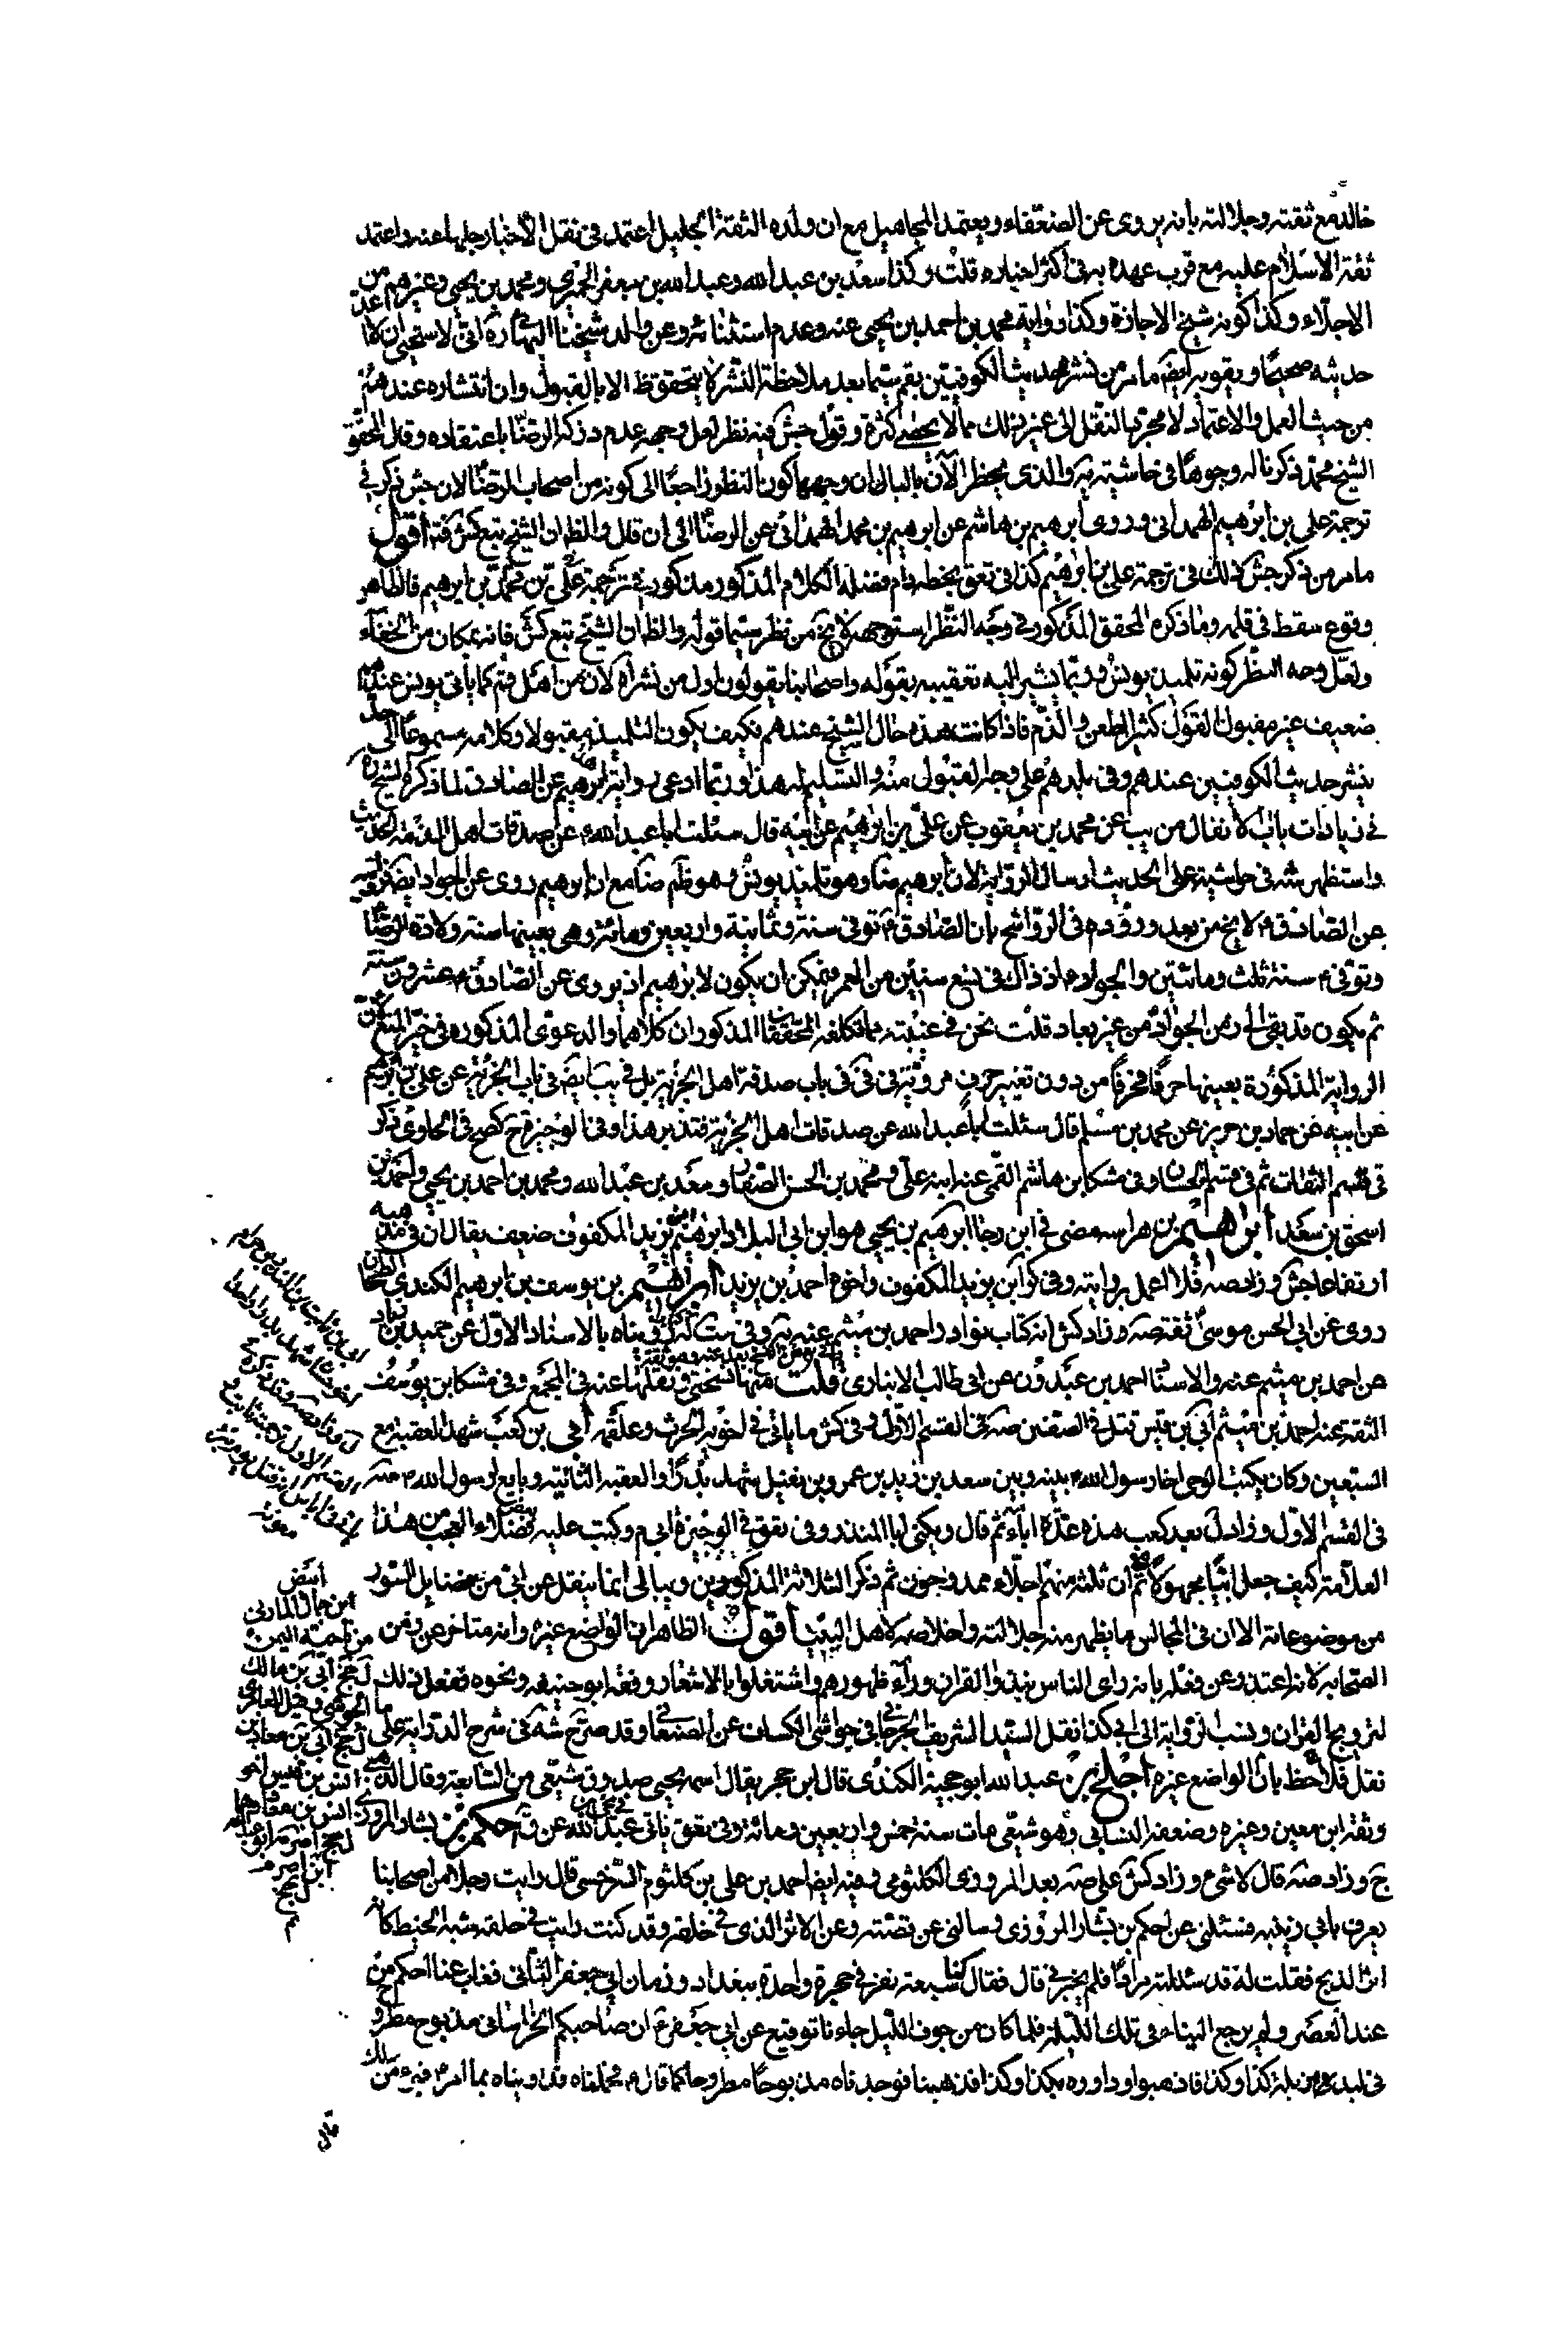 خالد مع ثقته وجلالته بانه يروى عن الضعفاء ويعتمد المجاهيل مع ان ولده الثقة الجليل اعتمد فى نقل الاخبار جلها عنه واعتمد
ثقة الاسلام عليه مع قرب عهده به فى اكثر اخباره قلت وكذا سعد بن عبد الله وعبد الله بن جعفر الحميرى ومحمد بن يحيى وغيرهم من
الاجلاء وكذا كونه شيخ الاجازة وكذا رواية محمد بن احمد بن يحيى عنه وعدم استثنائه وعن والد شيخنا البهائى ره انى لاستحيى ان لا اعد
حديثه صحيحا ويقويه ايضا ما مر من نشره حديث الكوفيين بقم سيما بعد ملاحظة ان النشر لا يتحقق ظ الا بالقبول وان انتشاره عندهم
من حيث العمل والاعتماد لا مجرد النقل الى غير ذلك مما لا يحصى كثرة وقول جش فيه نظر لعل وجهه عدم دركه الرضا باعتقاده وقال المحقق
الشيخ محمد ذكرنا له وجوها فى حاشية يه والذى يخطر الآن بالبال ان وجهها كون النظر راجعا الى كونه من اصحاب الرضا لان جش ذكر فى
ترجمة على بن ابرهيم الهمدانى وروى ابرهيم بن هاشم عن ابرهيم بن محمد الهمدانى عن الرضا الى ان قال والظ ان الشيخ تبع كش فته اقول
ما مر من ذكر جش ذلك فى ترجمة على بن ابرهيم كذا فى تعق بخطه دام فضله الكلام المذكور مذكور فى ترجمة على بن محمد بن ابرهيم فالظاهر
وقوع سقط فى قلمه وما ذكره المحقق المذكور فى وجه النظر استوجهه لا يخ من نظر سيما قوله والظ ان الشيخ تبع كش فانه بمكان من الخفاء
ولعل وجه النظر كونه تلميذ يونس وربما يشير اليه تعقيبه بقوله واصحابنا يقولون اول من نشر اه لان من اهل قم كما ياتى يونس عندهم
ضعيف غير مقبول القول كثير الطعن والذم فاذا كانت هذه حال الشيخ عندهم فكيف يكون التلميذ مقبولا وكلامه مسموعا حتى
ينشر حديث الكوفيين عندهم وفى بلدهم على وجه القبول منه والتسليم له هذا وربما ادعى رواية ابرهيم عن الصادق لما ذكره الشيخ ره
فى زيادات باب الانفال من يب عن محمد بن يعقوب عن على بن ابرهيم عن ابيه قال سئلت ابا عبد الله عن صدقات اهل الذمة الحديث
واستظهر شه فى حواشيه على الحديث ارسال الرواية لان ابرهيم ضا وهو تلميذ يونس وهو ظم ضا مع ان ابرهيم روى عن الجواد ايضا فروايته
عن الصادق لا يخ من بعد ورده م فى الرواشح بان الصادق ع توفى سنة وثمانية واربعين ومائة وهى بعينها سنة ولادة الرضا ع
وتوفى ع سنة ثلث ومائتين والجواد ع اذ ذاك فى تسع سنين من العمر فيمكن ان يكون لابرهيم اذ يروى عن الصادق ع عشرون سنة
ثم يكون قد بقى الى زمن الجواد من غير بعاد قلت نحن فى غنية مما تكلفه المحققان المذكوران كلاهما والدعوى المذكوره فى حيز المنع لان
الرواية المذكورة بعينها حرفا فحرفا من دون تغيير حرف مروية فى فى فى باب صدقة اهل الجزية بل فى يب ايضا فى باب الجزية عن على بن ابرهيم
عن ابيه عن حماد بن حريز عن محمد بن مسلم قال سئلت ابا عبد الله عن صدقات اهل الجزية فتدبر هذا وفى الوجيزة ح كصح وفى الحاوى ذكر
فى قسم الثقات ثم فى قسم الحسان وفى مشكا ابن هاشم القمى عنه ابنه على ومحمد بن الحسن الصفار وسعد بن عبد الله ومحمد بن احمد بن يحيى واحمد بن
اسحق بن سعد ابرهيم بن هراسه مضى فى ابن رجا ابرهيم بن يحيى هو ابن ابى البلاد ابرهيم بن يزيد المكفوف ضعيف يقال ان فى مذهبه
ارتفاعا جش وزاد صه فلا اعمل بروايته وفى كرا بن يزيد المكفوف واخوه احمد بن يزيد ابرهيم بن يوسف بن ابرهيم الكندى الطحان
روى عن ابى الحسن موسى ثقة صه وزاد كش له كتاب نوادر احمد بن ميثم عنه به وفى ست له كتاب رويناه بالاسناد الاول عن حميد بن زياد
عن احمد بن ميثم عنه والاسنا احمد بن عبدون عن ابى طالب الانبارى قلت منها نسختى ونقلها عنه فى المجمع وفى مشكا ابن يوسف
الثقة عنه احمد بن ميثم ابى بن قيس قتل فى الصفين صه فى القسم الاول وفى كش ما ياتى فى اخويه الحرث وعلقمة ابى بن كعب شهد العقبة مع
السبعين وكان يكتب الوحى اخا رسول الله ص بينه وبين سعد بن زيد بن عمرو بن نفيل شهد بدرا والعقبة الثانية وبايع لرسول الله ص صه
فى القسم الاول وزاد ل بعد كعب هذه عدة اباء ثم قال ويكنى ابا المنذر وفى تعق فى الوجيزة ابى م وكتب عليه بعض الفضلاء العجب من هذا
العلامة كيف جعل ابيا مجهولا ثم ان ثلثة منهم اجلاء ممدوحون ثم ذكر الثلاثة المذكورين وببالى انما ينقل عن ابى من فضايل السور
من موضوعاته الا ان فى المجالس ما يظهر منه جلالته واخلاصه لاهل البيت اقول الظاهر ان الواضع غيره وانه متاخر عن زمن
الصحابه لانه اعتذر عن فعله بانه راى الناس نبذوا القران وراء ظهورهم واشتغلوا بالاشعار وفقه ابو حنيفه ونحوه ففعل ذلك
لترويج القران ونسب الرواية الى ابى كذا نقل السيد الشريف الجرجانى فى حواشى الكشاف عن الصنعانى وقد صرح شه فى شرح الدراية على
نقل فلاحظ بان الواضع غيره اجلح بن عبد الله ابو حجية الكندى قال ابن حجر يقال اسمه يحيى صدوق شيعى من السابعة وقال الذهبى
وثقه ابن معين وغيره وضعفه النسائى وهو شيعى مات سنة خمس واربعين ومائة وفى تعق ياتى فى يحيى بن عبد الله عن ق احكم بن بشار المروزى
ج وزاد صه قال لا شىء وزاد كش على صه بعد المروزى الكلثومى وفيه ايضا احمد بن على بن كلثوم السرخسى قال رايت رجلا من اصحابنا
يعرف بابى زينبه فسئلنى عن احكم بن بشار المروزى وسالنى عن قصته وعن الاثر الذى فى حلقه وقد كنت رايت فى حلقه شبه الخيط كانه
اثر الذبح فقلت له قد سئلته مرارا فلم يخبرنى قال فقال كنا سبعة نفر فى حجرة واحدة ببغداد فى زمان ابى جعفر الثانى فغاب عنا احكم من
عند العصر ولم يرجع الينا فى تلك الليلة فلما كان من جوف الليل جاءنا توقيع عن ابى جعفر ع ان صاحبكم الخراسانى مذبوح مطروح
فى لبد فى مزبلة كذا وكذا فاذهبوا وداووه بكذا وكذا فذهبنا فوجدناه مذبوحا مطروحا كما قال ع فحملناه وداويناه بما امر ع فبرء من ذلك
ابيض
ابن جمال الماربى
من ناحية اليمن
ل جخ ابى بن مالك
الحرشى وقيل العامرى
ل جخ ابى بن معاذ بن
انس بن قيس اخو
انس بن معاذ هما